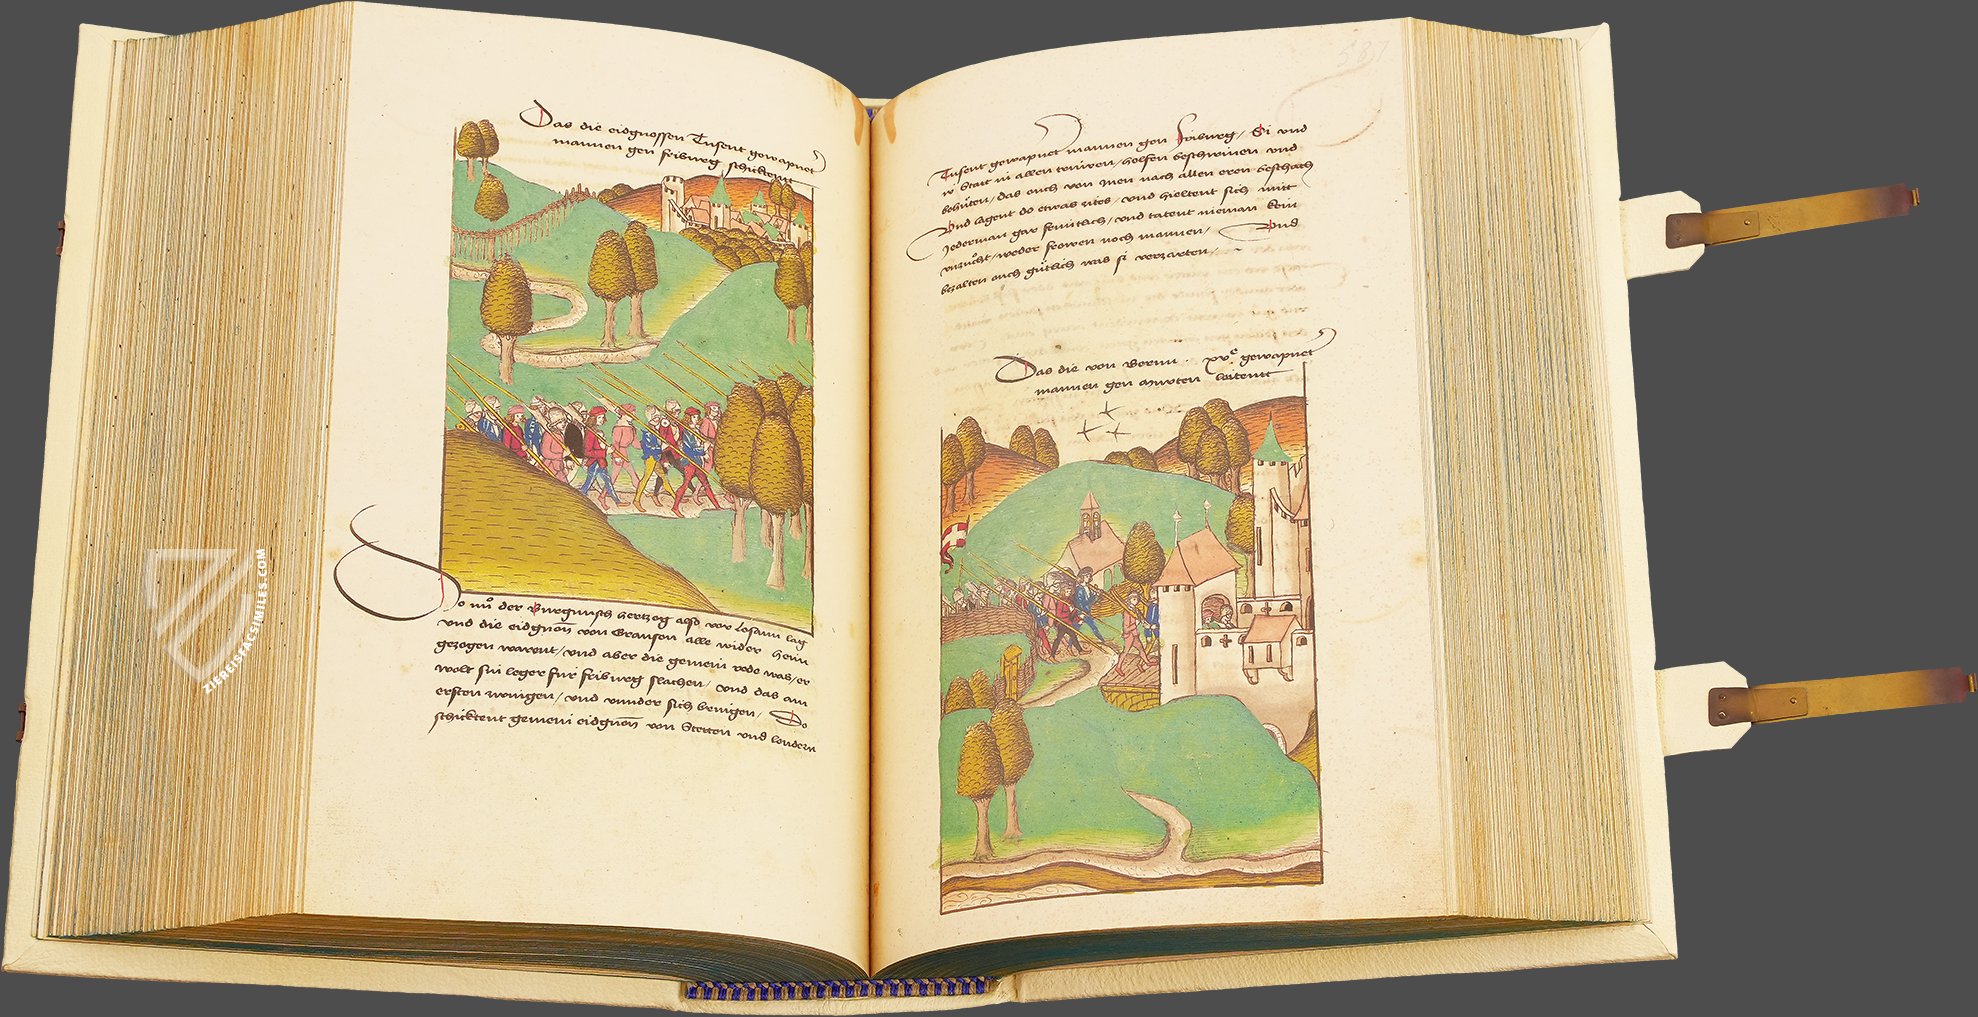 Das die eidgnossen Tusent gewapnet
mannen gen friburg schicktent
So nů der Burgunsch hertzog also vor Losann lag
vnd die eidgnon̄ von Granson alle wider heim
gezogen warent / vnd aber die gemein rede was / er
wolt sin leger fur friburg slachen / vnd das am
ersten nottigen / vnd vnnder sich bringen / Do
schicktent gemein eidgnon̄ von Stetten vnd lendern
587
Tusent gewapnet mannen gen friburg / Si vnd
ir Statt in allen truwen / helfen beschirmen vnd
behůten / das ouch von inen nach allen eren beschach
Vnd lagent do etwas zites / vnd hieltent sich mit
Jederman gar fruntlich / vnd tatent nieman kein
vnzucht / weder frowen noch mannen / Vnd
bezalten ouch gůtlich was si verzarten
Das die von Bernn xvᶜ gewapnet
mannen gen Murten leitent
ZIEREISFACSIMILES.COM